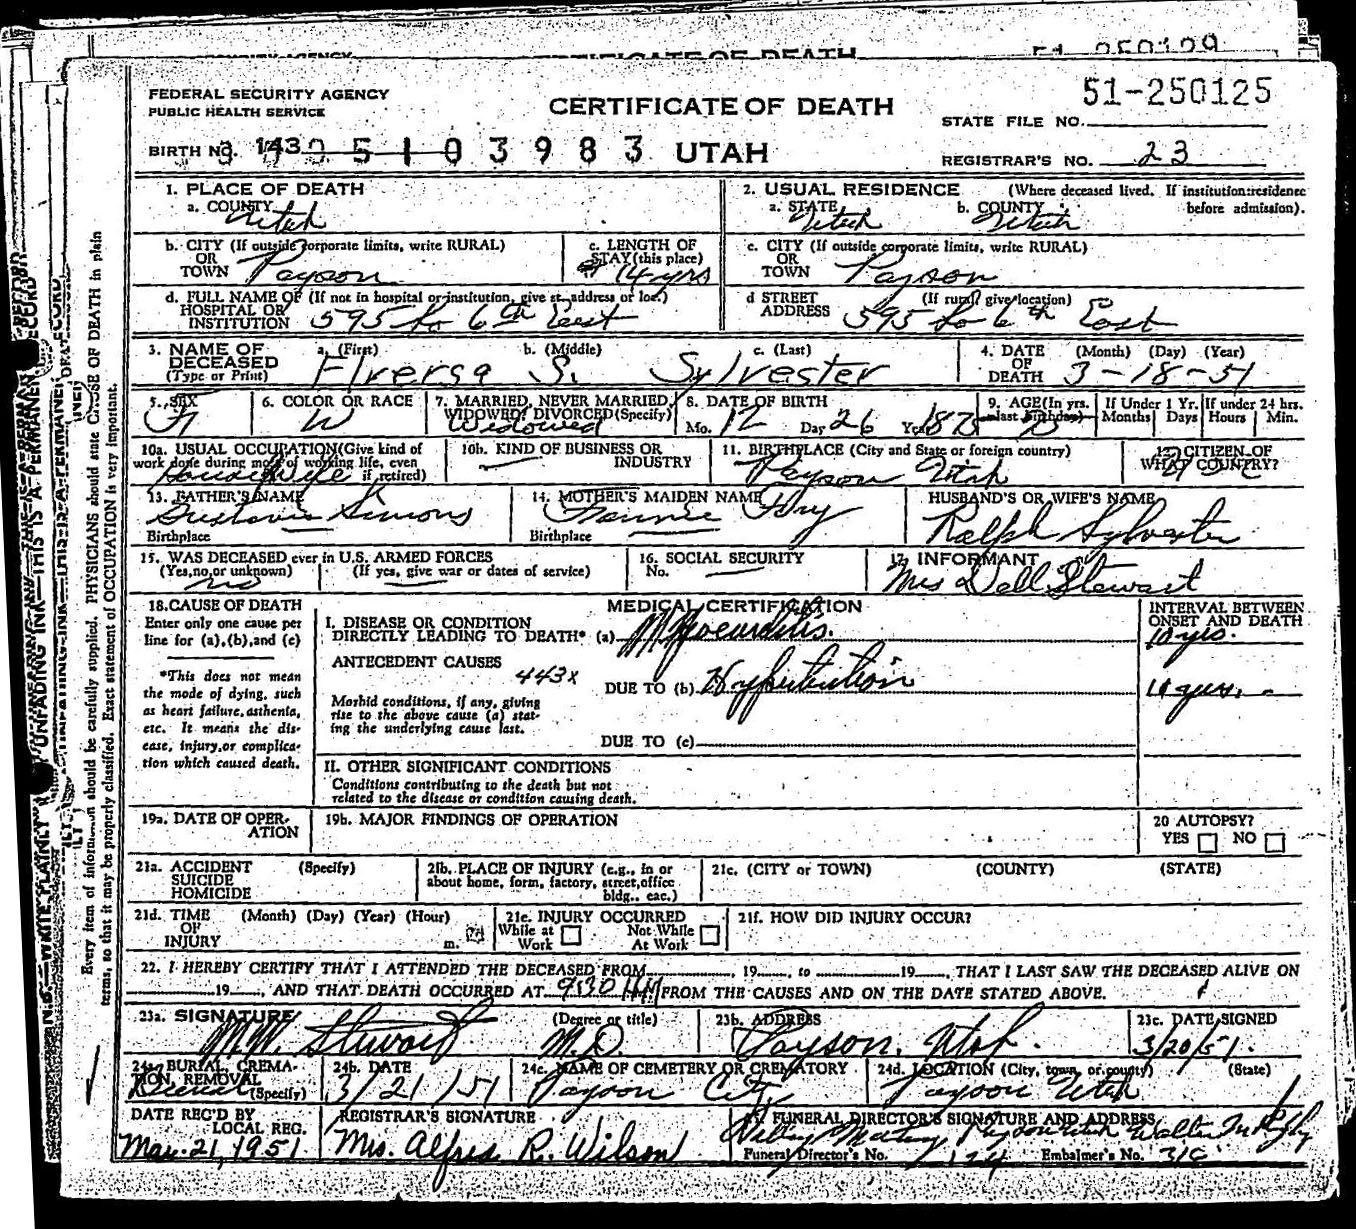 CERTIFICATE OF DEATH
FEDERAL SECURITY AGENCY
PUBLIC HEALTH SERVICE
CERTIFICATE OF DEATH
51-250125
STATE FILE NO.
BIRTH NO. 143 5103983 UTAH
REGISTRAR'S NO. 23
1. PLACE OF DEATH
a. COUNTY Utah
2. USUAL RESIDENCE (Where deceased lived. If institution:residence before admission).
a. STATE Utah b. COUNTY Utah
b. CITY (If outside corporate limits, write RURAL) OR TOWN Payson
c. LENGTH OF STAY (this place) 14 yrs
c. CITY (If outside corporate limits, write RURAL) OR TOWN Payson
d. FULL NAME OF (If not in hospital or institution, give st. address or loc.) HOSPITAL OR INSTITUTION 595 So 6th East
d STREET ADDRESS (If rural give location) 595 So 6th East
3. NAME OF DECEASED (Type or Print) a. (First) b. (Middle) c. (Last)
Elversa S. Sylvester
4. DATE OF DEATH (Month) (Day) (Year) 3-18-51
5. SEX F
6. COLOR OR RACE W
7. MARRIED, NEVER MARRIED, WIDOWED, DIVORCED (Specify) Widowed
8. DATE OF BIRTH Mo. 12 Day 26 Year
9. AGE (In yrs. last birthday)
If Under 1 Yr. Months Days
If under 24 hrs. Hours Min.
10a. USUAL OCCUPATION (Give kind of work done during most of working life, even if retired) Housewife
10b. KIND OF BUSINESS OR INDUSTRY
11. BIRTHPLACE (City and State or foreign country) Payson Utah
12. CITIZEN OF WHAT COUNTRY?
13. FATHER'S NAME Gustavus Simons
Birthplace
14. MOTHER'S MAIDEN NAME
Birthplace
HUSBAND'S OR WIFE'S NAME Ralph Sylvester
15. WAS DECEASED ever in U.S. ARMED FORCES
(Yes, no, or unknown) no (If yes, give war or dates of service)
16. SOCIAL SECURITY No.
17. INFORMANT Mrs Dell Stewart
18. CAUSE OF DEATH
Enter only one cause per line for (a), (b), and (c)
*This does not mean the mode of dying, such as heart failure, asthenia, etc. It means the disease, injury, or complication which caused death.
MEDICAL CERTIFICATION
INTERVAL BETWEEN ONSET AND DEATH
I. DISEASE OR CONDITION DIRECTLY LEADING TO DEATH* (a) Myocarditis. 10 yrs.
ANTECEDENT CAUSES 443x
DUE TO (b) Hypertention
Morbid conditions, if any, giving rise to the above cause (a) stating the underlying cause last.
DUE TO (c)
II. OTHER SIGNIFICANT CONDITIONS
Conditions contributing to the death but not related to the disease or condition causing death.
19a. DATE OF OPERATION
19b. MAJOR FINDINGS OF OPERATION
20 AUTOPSY? YES NO
21a. ACCIDENT SUICIDE HOMICIDE (Specify)
21b. PLACE OF INJURY (e.g., in or about home, form, factory, street, office bldg., eac.)
21c. (CITY or TOWN) (COUNTY) (STATE)
21d. TIME OF INJURY (Month) (Day) (Year) (Hour) m.
21e. INJURY OCCURRED While at Work Not While At Work
21f. HOW DID INJURY OCCUR?
22. I HEREBY CERTIFY THAT I ATTENDED THE DECEASED FROM , 19 , to 19 , THAT I LAST SAW THE DECEASED ALIVE ON
19 , AND THAT DEATH OCCURRED AT 9:30 FROM THE CAUSES AND ON THE DATE STATED ABOVE.
23a. SIGNATURE Stewart (Degree or title) M.D.
23b. ADDRESS Payson, Utah.
23c. DATE SIGNED 3/20/51.
24a. BURIAL, CREMATION, REMOVAL (Specify) Burial
24b. DATE 3/21/51
24c. NAME OF CEMETERY OR CREMATORY Payson City
24d. LOCATION (City, town, or county) (State) Payson Utah
DATE REC'D BY LOCAL REG. Mar. 21, 1951
REGISTRAR'S SIGNATURE Mrs. Alfred R. Wilson
FUNERAL DIRECTOR'S SIGNATURE AND ADDRESS Payson Utah Walter
Funeral Director's No. Embalmer's No.
Every item of information should be carefully supplied. PHYSICIANS should state CAUSE OF DEATH in plain
terms, so that it may be properly classified. Exact statement of OCCUPATION is very important.